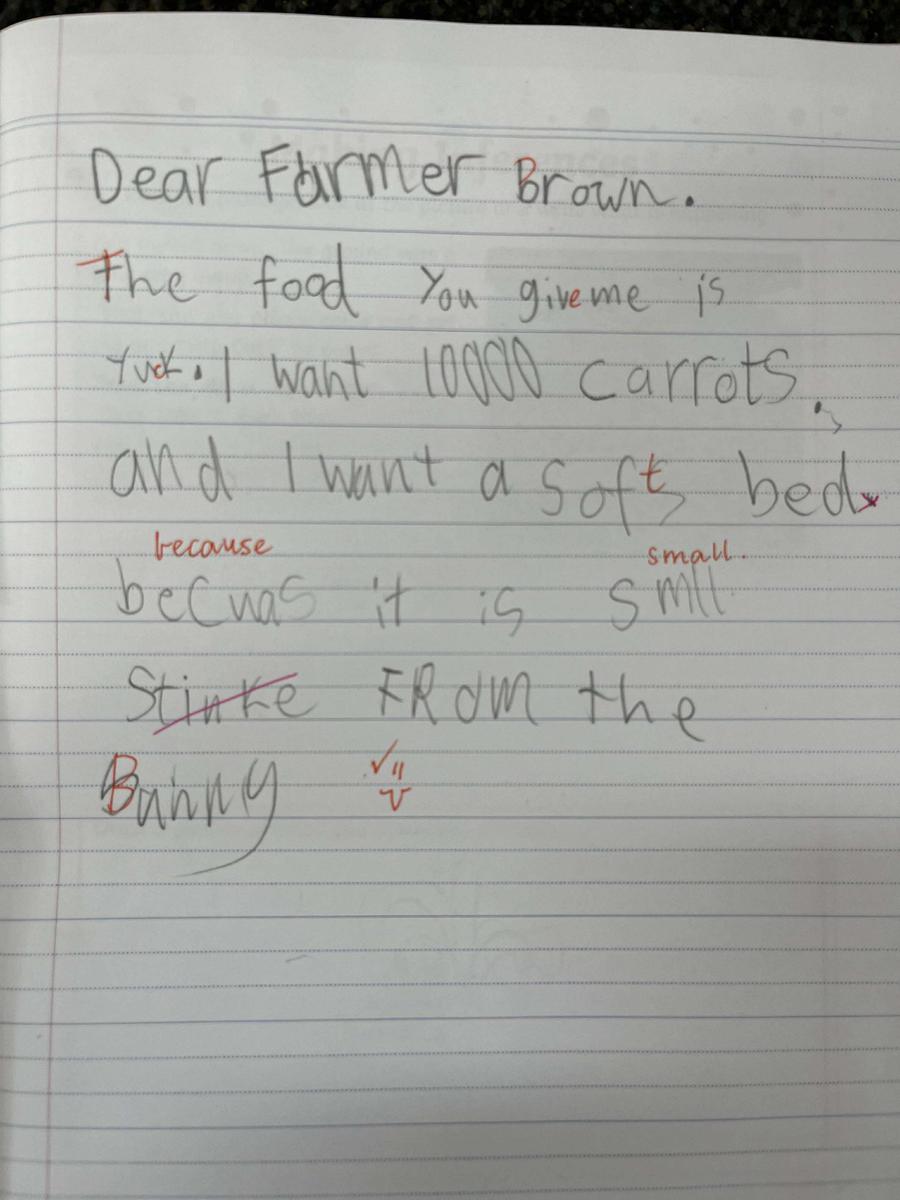 Dear Farmer Brown.
The food You give me is
Yuck. I want 10000 carrots.,
and I want a soft bed
because small.
becuas it is smll
Stinke FRom the
Bunny